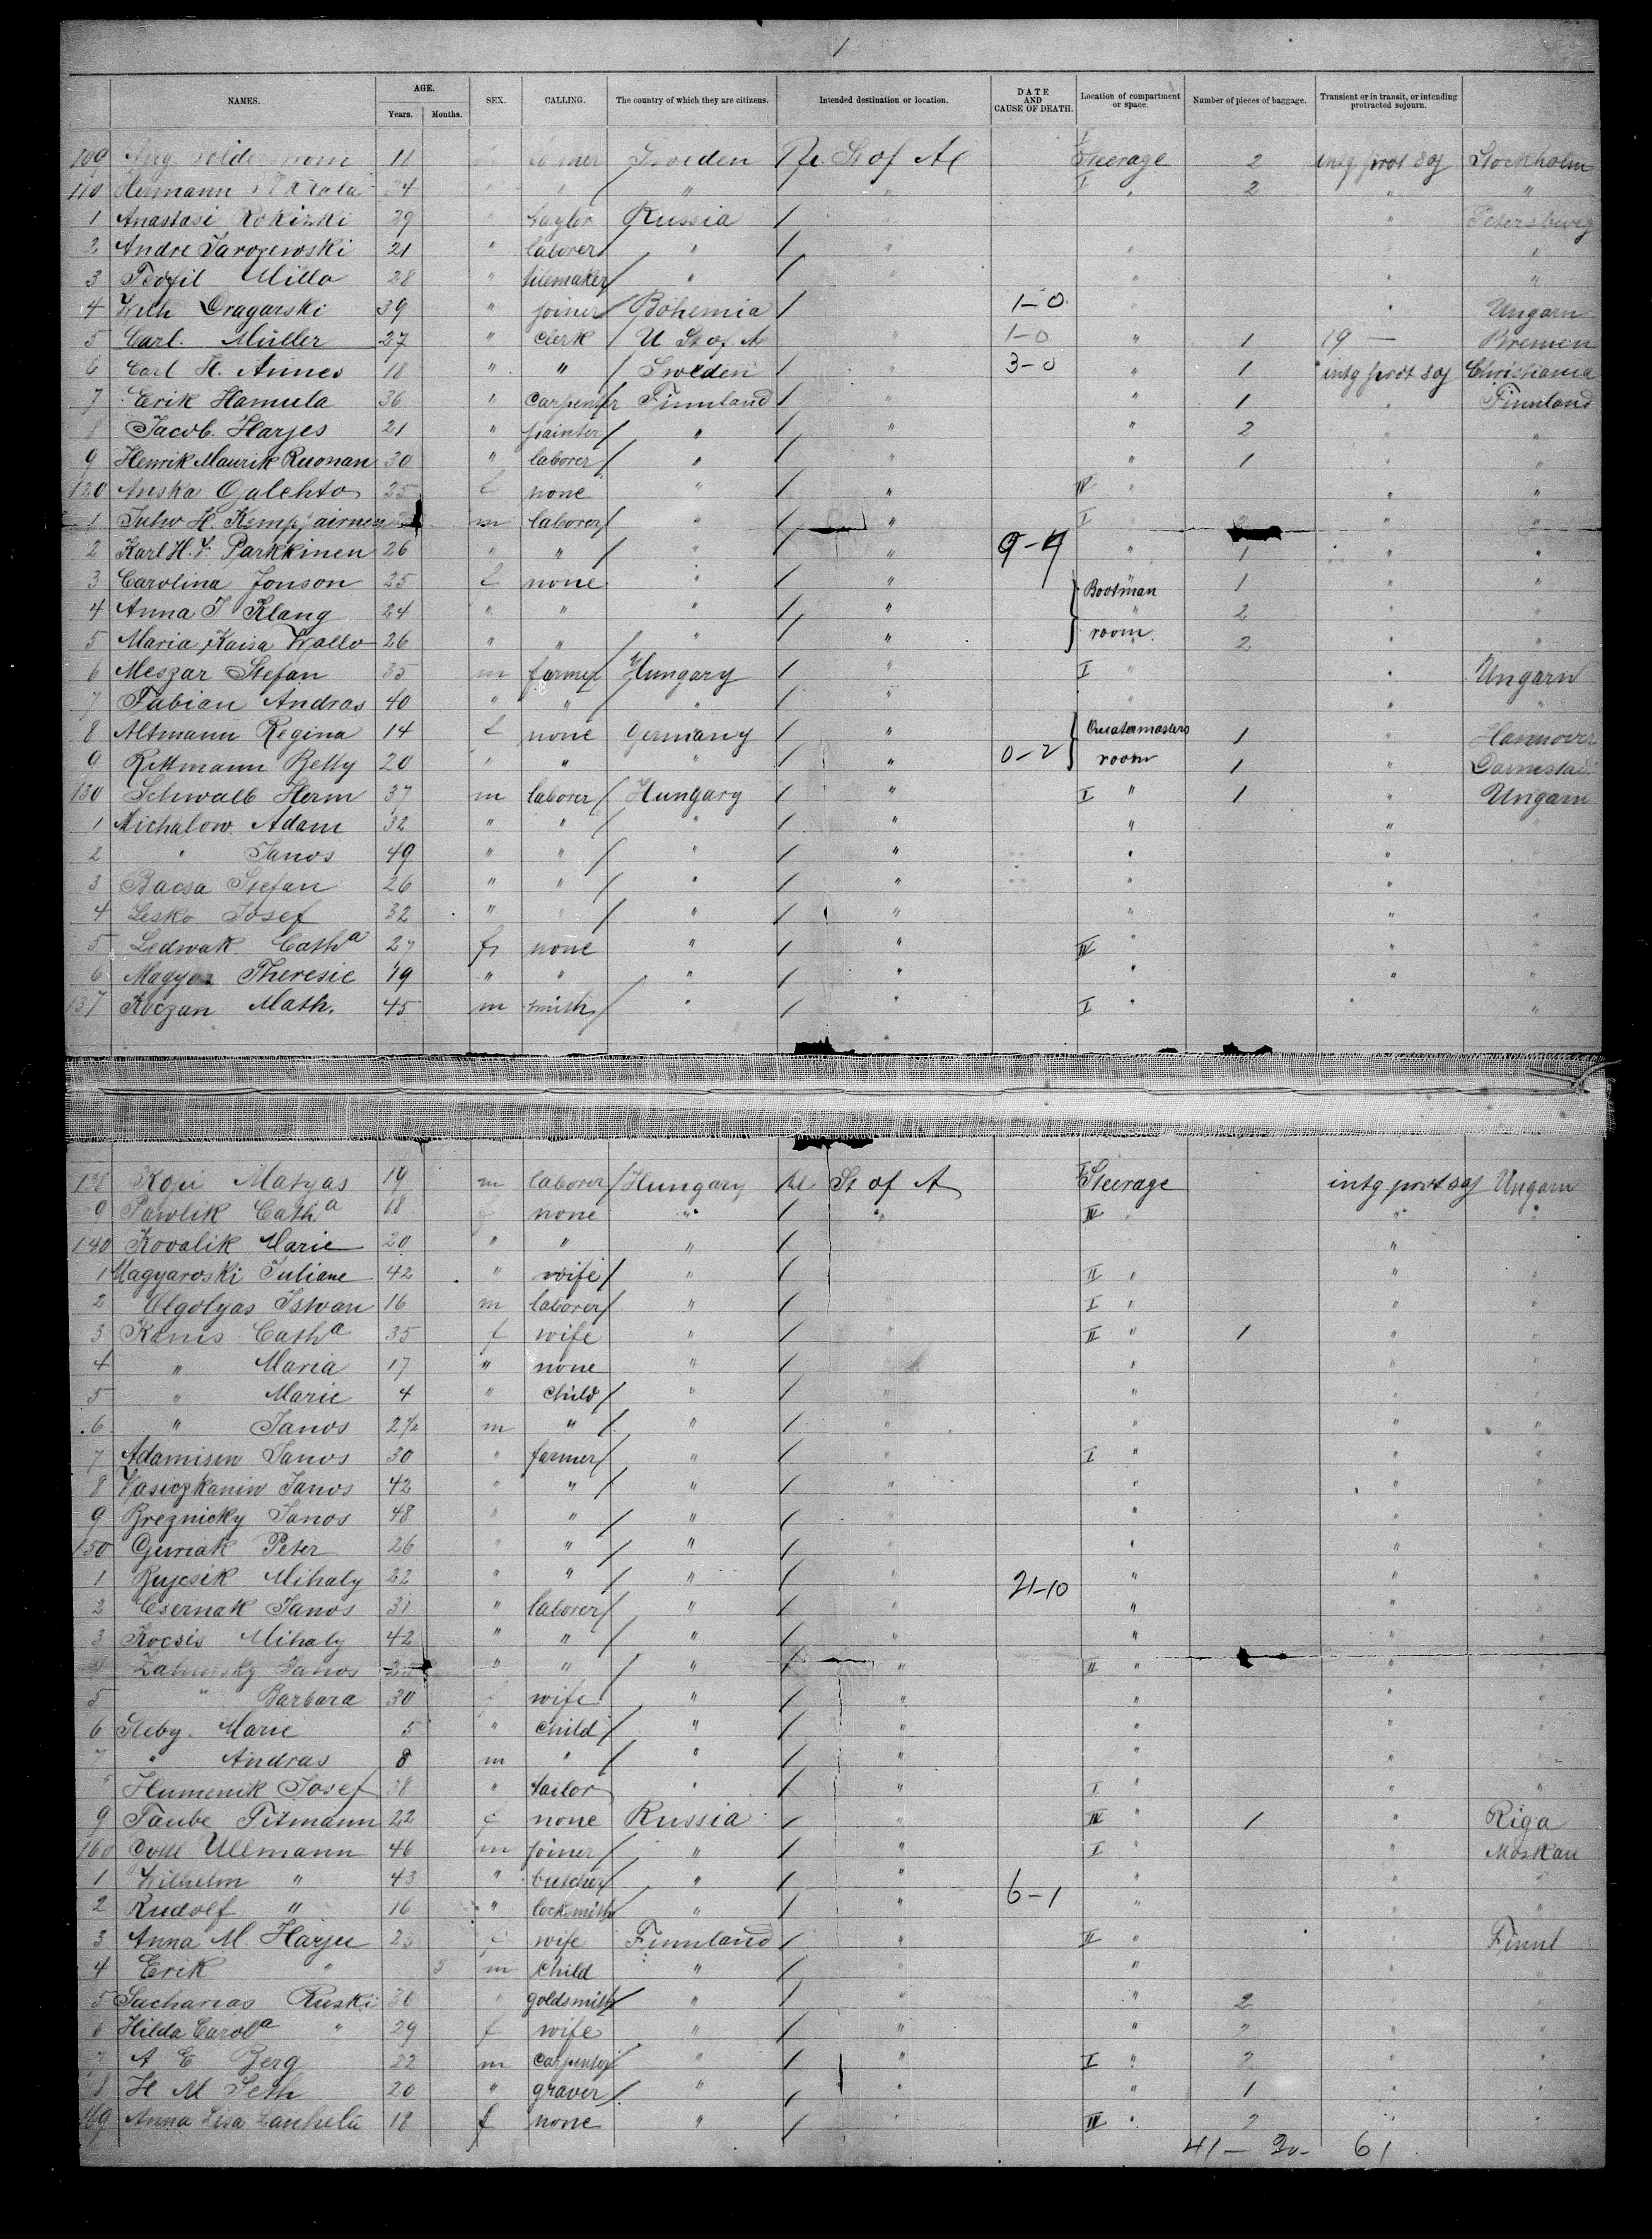 1
NAMES. AGE. Years. Months. SEX. CALLING. The country of which they are citizens. Intended destination or location. DATE AND CAUSE OF DEATH. Location of compartment or space. Number of pieces of baggage. Transient or in transit, or intending protracted sojourn.
109 Aug 11 Sweden St of A I Steerage 2 intg prot soj Stockholm
110 Hermann 34 " / " " I " 2 " "
1 Anastasi Rokinski 29 " taylor Russia / " Petersburg
2 Andre Jarozewski 21 " laborer / " / " " " "
3 Teofil Milla 28 " tilemaker / " / " " "
4 Wilh Dragarski 39 " joiner / Bohemia / 1-0 " Ungarn
5 Carl. Müller 27 " clerk / U St of A " 1-0 " 1 19 — Bremen
6 Carl H. Annes 18 " " / Sweden / " 3-0 " 1 intg prot soj Christiania
7 Erik Hamula 36 " carpenter Finnland / " " 1 " Finnland
8 Jacob. Harjes 21 " painter / " / " " 2 " "
9 Henrik Maurik Ruonan 30 " laborer / " / " " 1 " "
120 Anska Galehto 35 f none " / " IV " " "
1 H. m laborer / " / " I " "
2 Karl H. J. Parkkinen 26 " " / " / " 9-4 " 1 " "
3 Carolina Jonson 25 f none " / " Bootman 1 " "
4 Anna J Klang 24 " " " / " " 2 " "
5 Maria Kaisa Wallo 26 " " / " / " room. 2 " "
6 Meszar Stefan 35 m farmer / Hungary / " I " " Ungarn
7 Fabian Andras 40 " " / " / " " " "
8 Altmann Regina 14 f none Germany / " Quatermasters 1 " Hannover
9 Rettmann Betty 20 " " " / " 0-2 room 1 " Darmstadt
130 Schwalb Herm 37 m laborer / Hungary / " I " 1 " Ungarn
1 Michalow. Adam 32 " " / " / " " " "
2 " Janos 49 " " / " / " " "
3 Bacsa Stefan 26 " " / " / " " "
4 Lesko Josef 32 " " / " / " " " "
5 Ledwak Catha 27 f none " / " IV " " "
6 Magyar Theresie 19 " " " / " " " "
137 Koczan Math. 45 m smith / " / " I " " "
138 Kopi Matyas 19 m laborer / Hungary St of A I Steerage intg prot soj Ungarn
9 Pawlik Catha 18 f none " / " IV " " "
140 Kovalik Marie 20 " " " / "
1 Magyaroski Juliane 42 " wife / " / II " " "
2 Olgolyas Istvan 16 m laborer / " / " I " " "
3 Kanis Catha 35 f wife " / " II " 1 " "
4 " Maria 17 " none " / " " " "
5 " Marie 4 " child / " / " " " "
6 " Janos 2½ m " / " / " " " "
7 Adamisin Janos 30 " farmer / " / " I " " "
8 Wasiczkanin Janos 42 " " / " / " " " "
9 Breznicky Janos 48 " " / " / " " " "
150 Guriak Peter 26 " " / " / " " " "
1 Bujcsik Mihaly 22 " " / " / " 21-10 " " "
2 Csernak Janos 31 " laborer / " / " " " "
3 Kocsis Mihaly 42 " " / " / " " " "
4 Janos " " / " / " II " " "
5 " Barbara 30 f wife " / " " " "
6 Sleby. Marie 5 " child / " / " " " "
7 " Andras 8 m " / " / " " "
" Humenik Josef 38 " tailor " / " I " " "
9 Taube Titmann 22 f none Russia / " IV " 1 " Riga
160 Ullmann 46 m joiner / " / " I " " Moskau
1 Wilhelm " 43 " butcher / " / " 6-1 " " "
2 Rudolf " 16 " locksmith / " / " " " "
3 Anna M. Harju 23 f wife Finnland / " II " " Finnl
4 Erik " 5 m child " / " " "
5 Sacharias Ruski 30 " goldsmith / " / " " 2 " "
6 Hilda Carola " 29 f wife " / " " 2 " "
7 A E Berg 22 m carpenter / " / " I " 2 " "
8 H M Seth 20 " graver / " / " " 1 " "
169 Anna Lisa 18 f none " / " IV " 2 " "
41 — 20 — 61